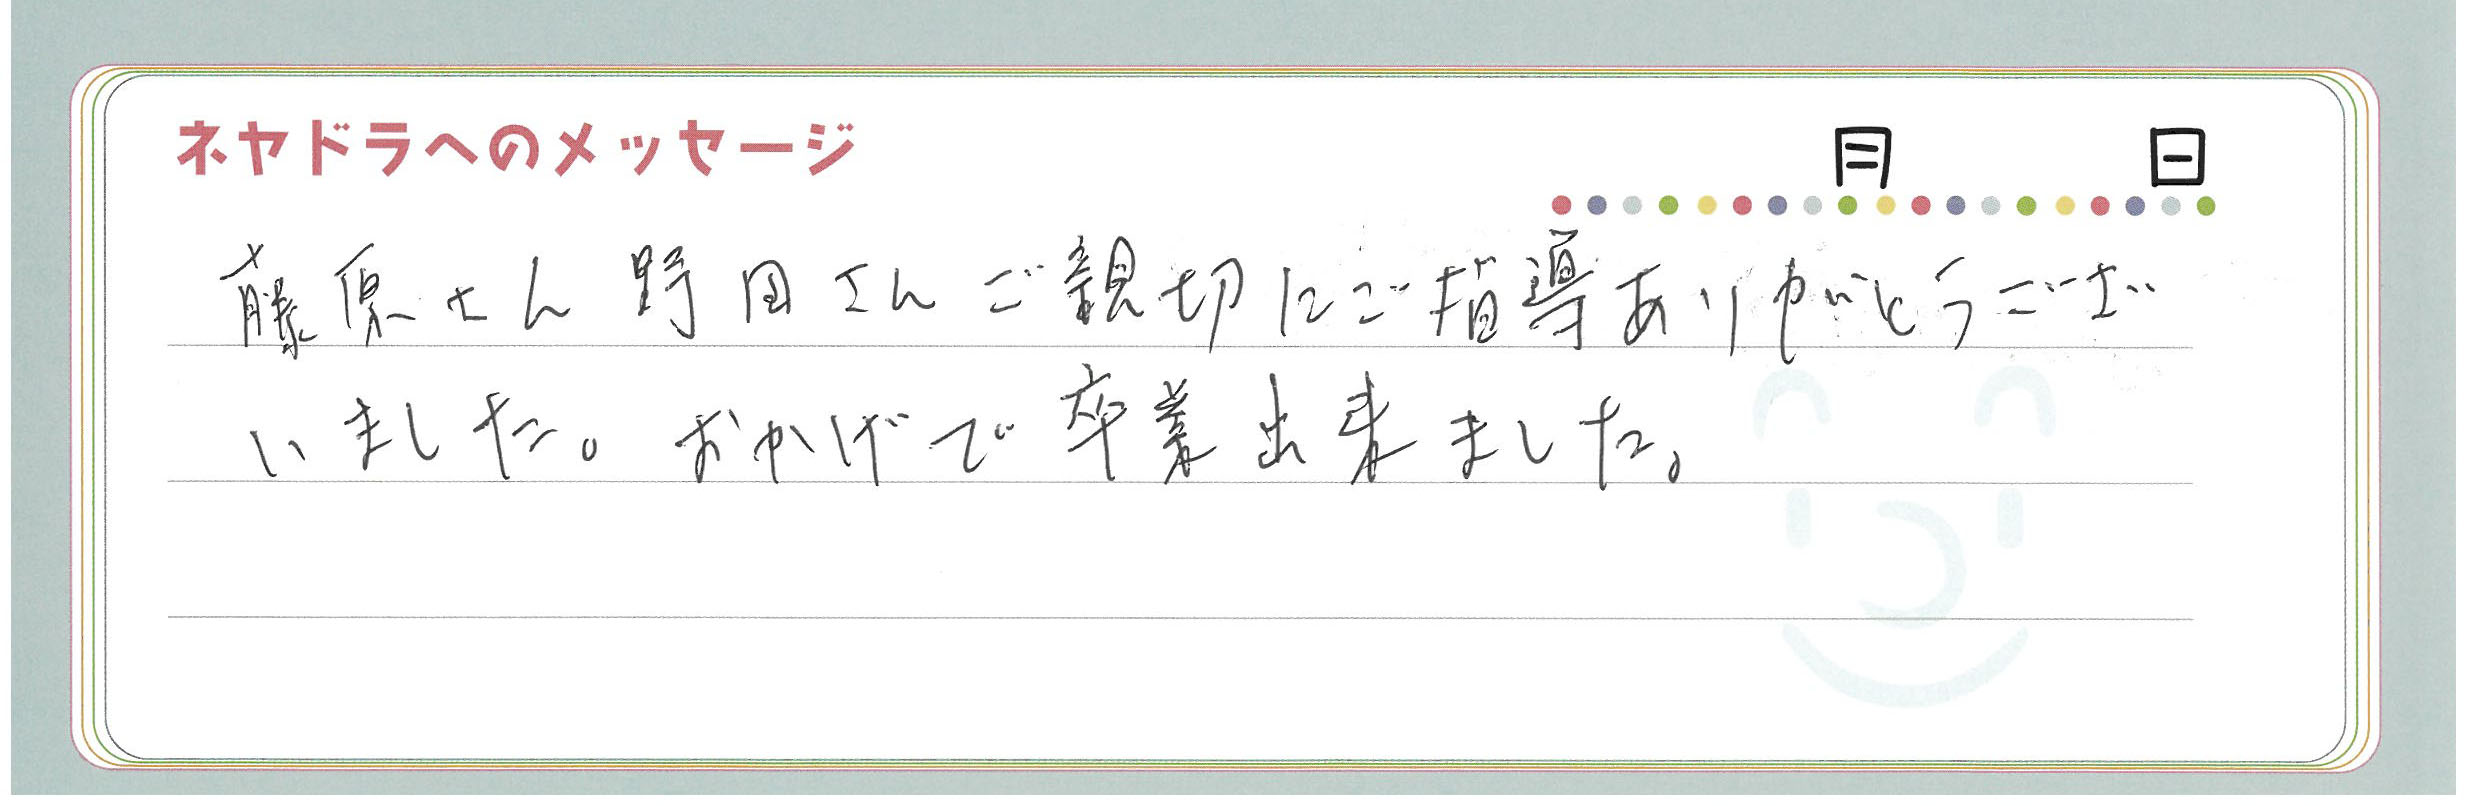 ネヤドラへのメッセージ
月 日
藤原さん野田さんご親切にご指導ありがとうござ
いました。おかげで卒業出来ました。